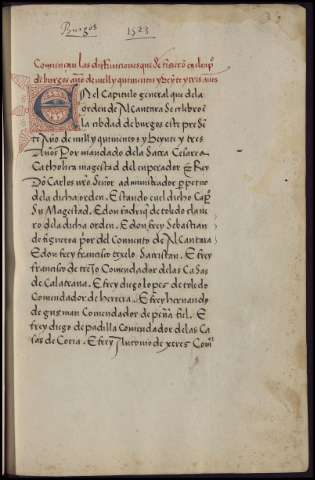 Burgos 1523
Comiençan las difiniciones que se fizierõ en la cibd
de burgos año de mill y quinientos y veynte y tres años
EN el Capitulo general que de la
orden de Alcantara Se celebro ẽ
la cibdad de burgos este presẽ
te Año de mill y quinientos y veynte y tres
Años Por mandado de la Sacra Cesarea
Catholica magestad del enperador E Rey
Dõ Carlos nr̃o Señor administrador perpetuo
de la dicha orden. Estando en el dicho Capº
Su Magestad. E don de toledo claue
ro de la dicha orden. E don frey Sebastian
de figueroa prior del Conuento de Alcantara
E don frey francisco Sacristan. E frey
francisco de Comendador de las Casas
de Calatraua. E frey diego lopes de toledo
Comendador de herrera. E frey hernando
de gusman Comendador de peña fiel. E
frey diego de padilla Comendador de las Ca
sas de Coria. E frey Antonio de xeres Comº